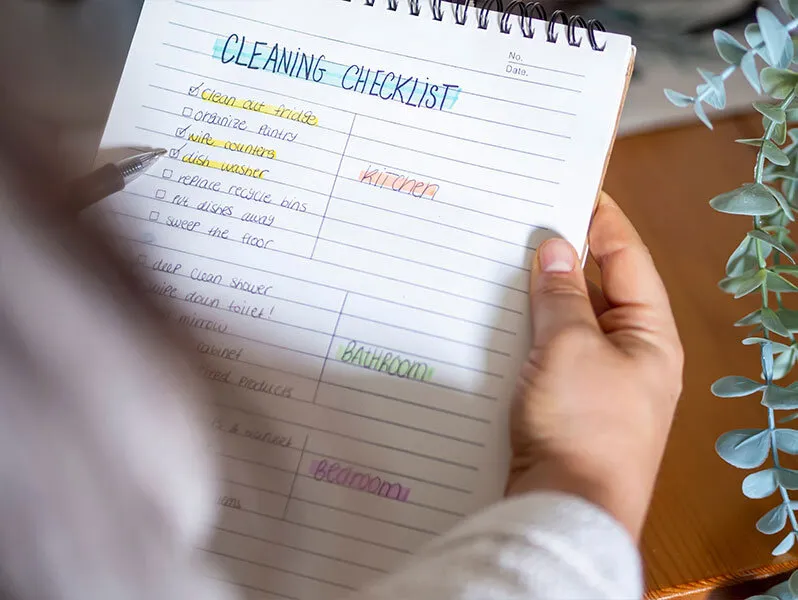 No.
Date.
CLEANING CHECKLIST
clean out fridge
organize pantry
wipe counters
dish washer
replace recycle bins
put dishes away
sweep the floor
KITCHEN
deep clean shower
wipe down toilet!
mirrow
products
BATHROOM
Bedroom